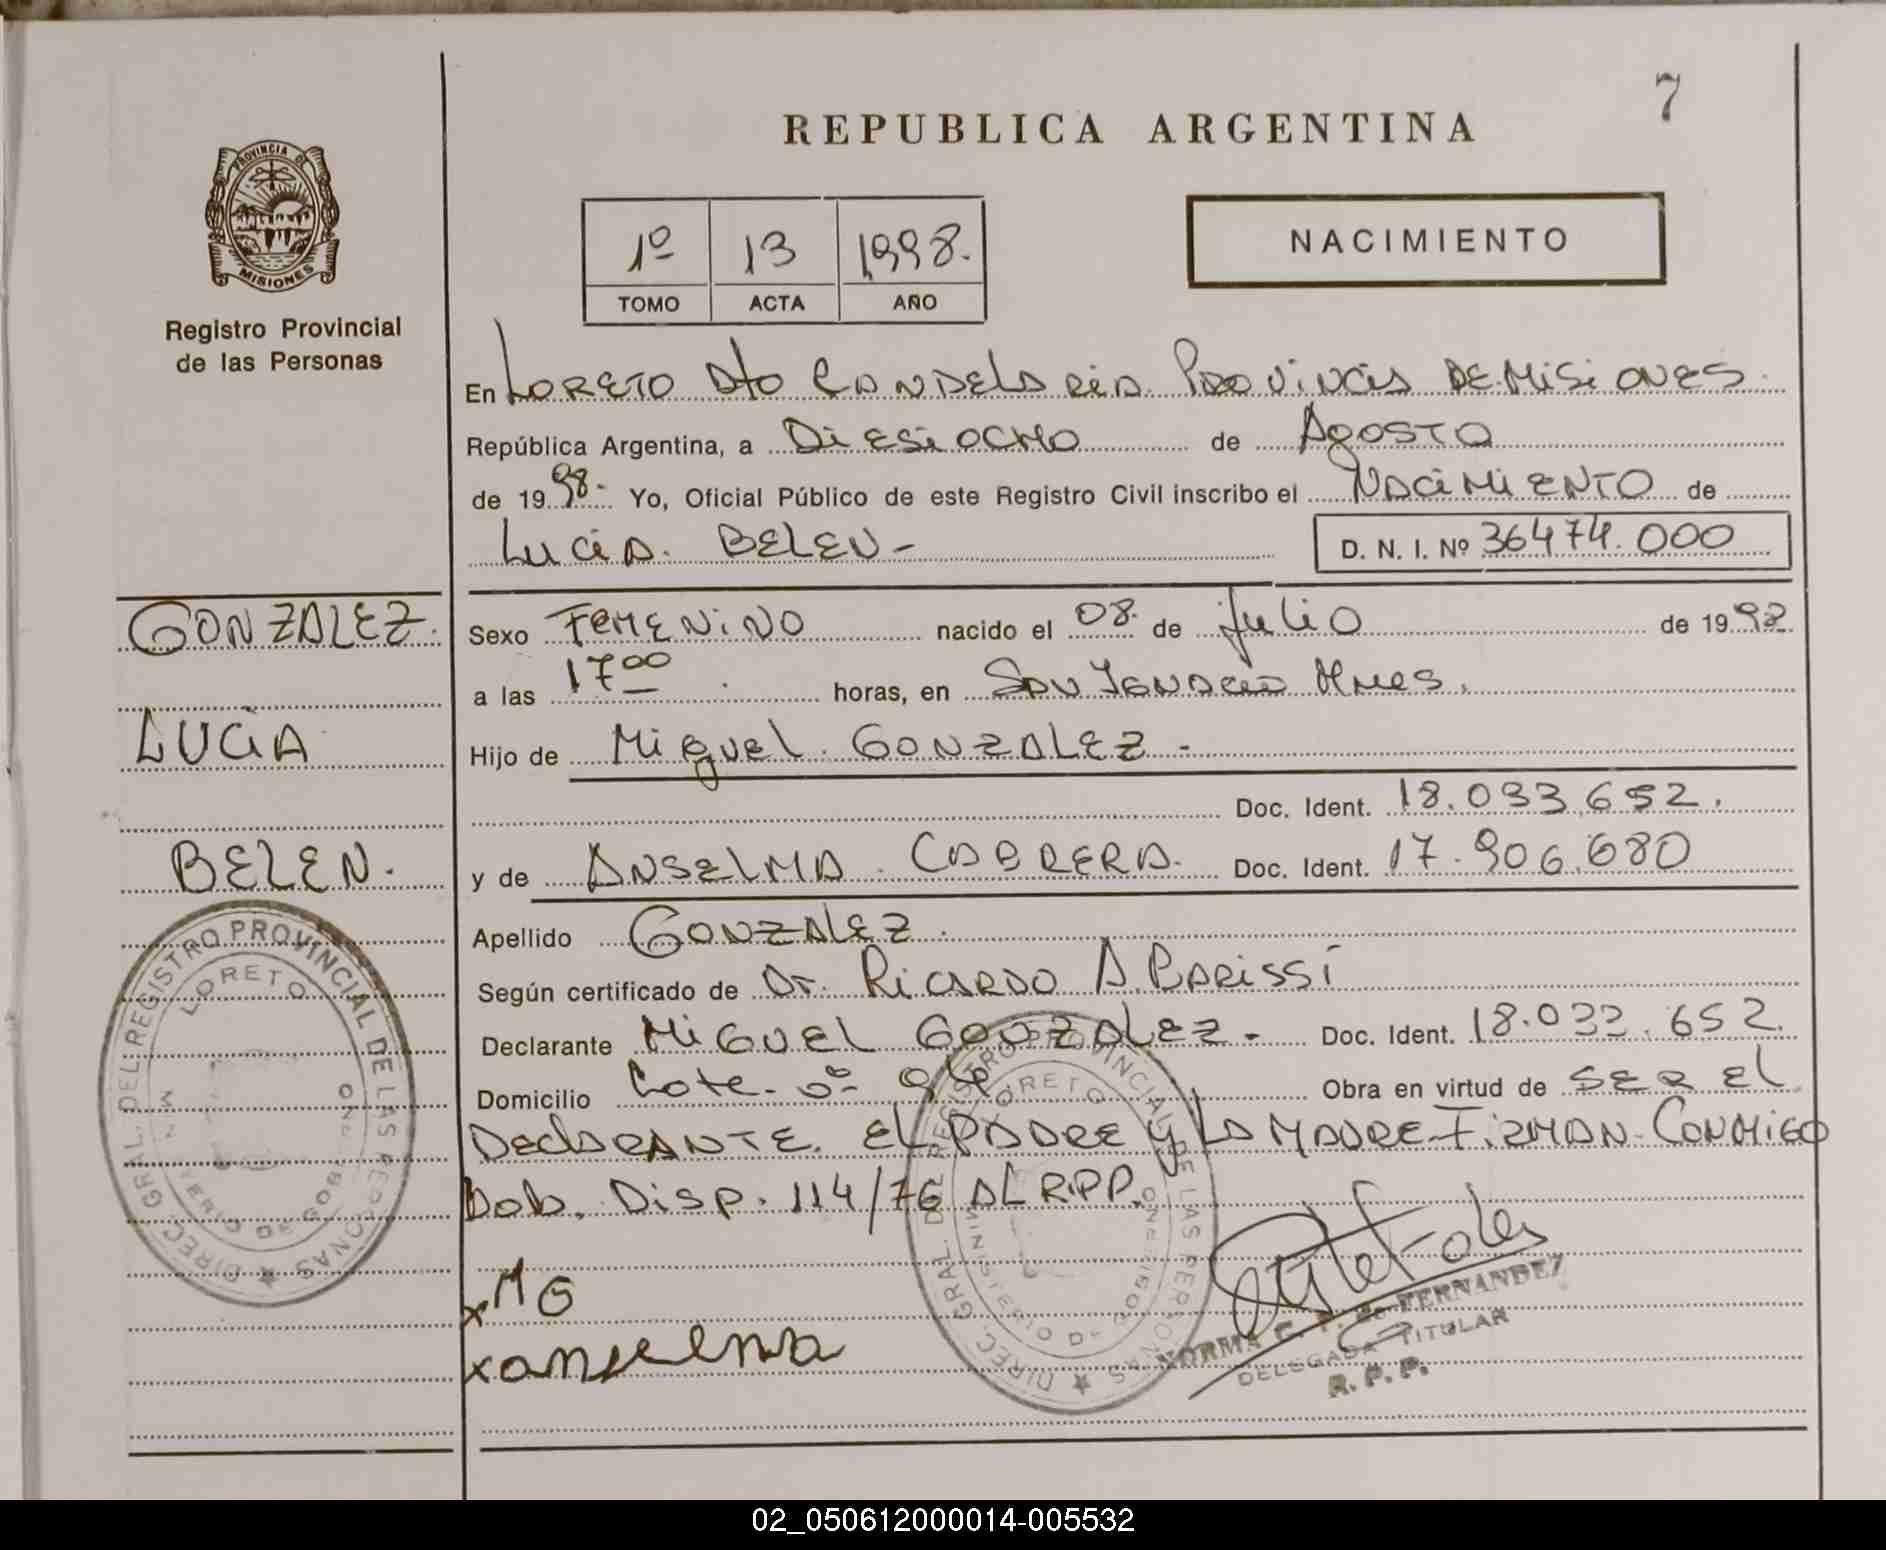 7
REPUBLICA ARGENTINA
PROVINCIA DE
MISIONES
Registro Provincial
de las Personas
1º 13 1998.
TOMO ACTA AÑO
NACIMIENTO
En LORETO Dto CANDELARIA. PROVINCIA DE MISIONES.
República Argentina, a DIESIOCHO de AGOSTO
de 1998.- Yo, Oficial Público de este Registro Civil inscribo el NACIMIENTO de
LUCIA. BELEN - D. N. I. Nº 36474.000
GONZALEZ.
Sexo FEMENINO nacido el 08. de Julio de 1992
a las 17 00 horas, en SAN IGNACIO Mnes.
LUCIA
Hijo de Miguel. GONZALEZ -
Doc. Ident. 18.033.652.
BELEN.
y de ANSELMA. CABRERA. Doc. Ident. 17.906.680
Apellido GONZALEZ.
Según certificado de Dr. RICARDO A. PARISSI
Declarante MIGUEL GONZALEZ - Doc. Ident. 18.033.652.
Domicilio Lote. nº 94 Obra en virtud de SER El
DEClARANTE. EL PADRE y LA MADRE FIRMAN CONMIGO
Dob. Disp. 114/76 AL R.P.P.
x MG
x anselma
DIREC. GRAL. DEL REGISTRO PROVINCIAL DE LAS PERSONAS
LORETO
DIREC. GRAL. DEL REGISTRO PROVINCIAL DE LAS PERSONAS
LORETO
NORMA C. F. de FERNANDEZ
DELEGADA TITULAR
R. P. P.
02_050612000014-005532